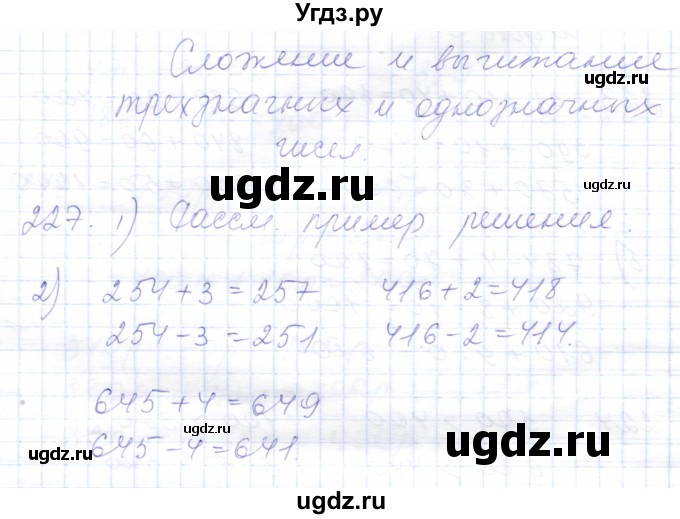 Угдз.ру
Сложение и вычитание
ugdz.ru
трехзначных и однозначных
чисел.
ugdz.ru
ugdz.ru
227. 1) Рассм. пример решения.
2) 254+3=257 416+2=418
ugdz.ru
254-3=251 416-2=414.
ugdz.ru
645+4=649
ugdz.ru
645-4=641.
ugdz.ru
ugdz.ru